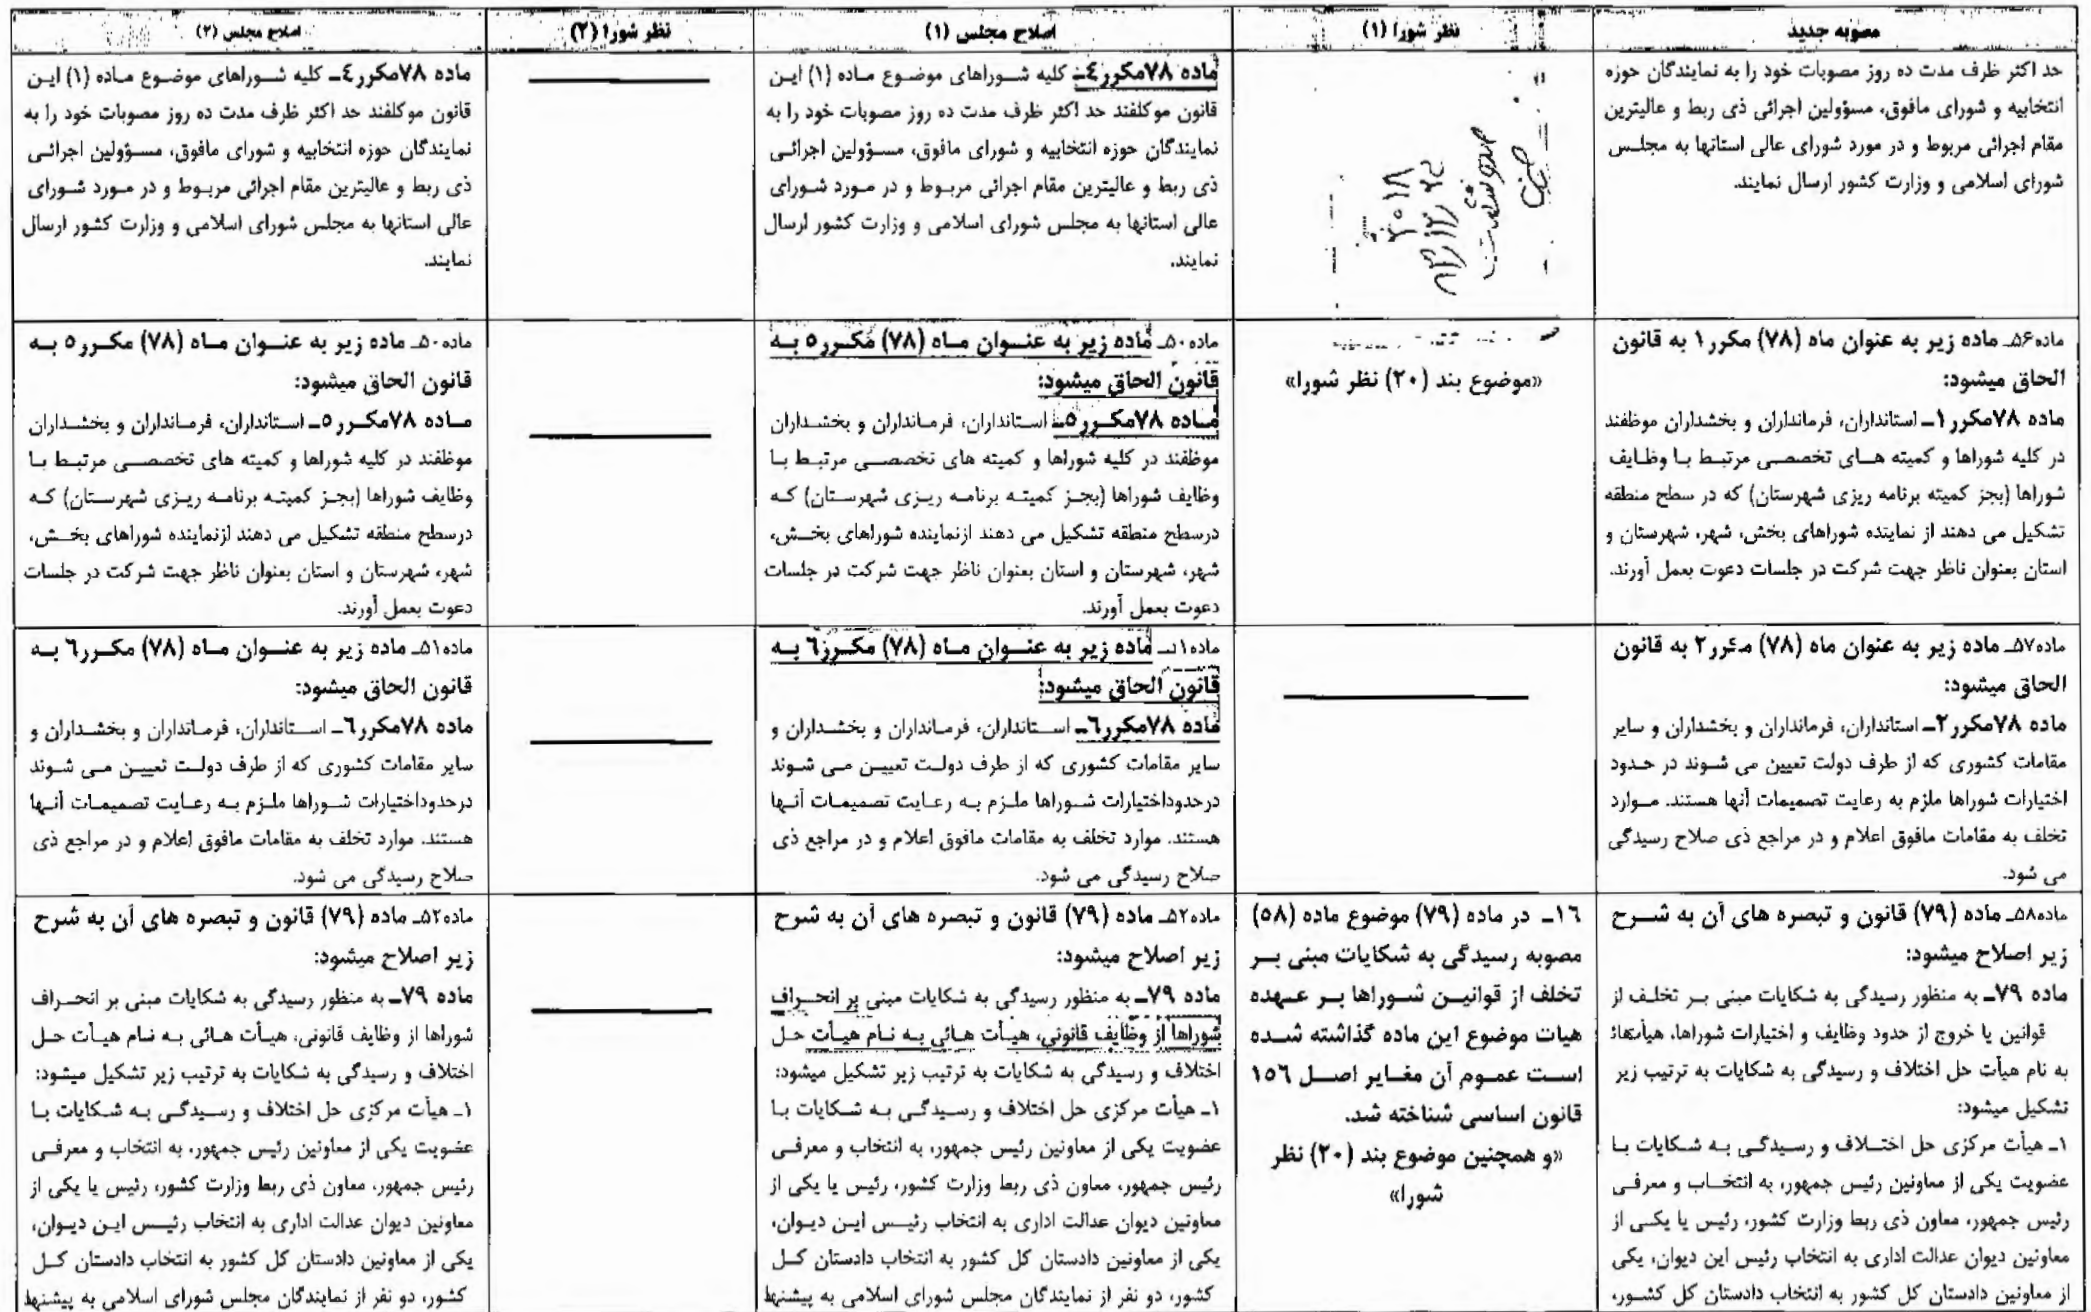 مصوبه جدید
نظر شورا (۱)
اصلاح مجلس (۱)
نظر شورا (۲)
اصلاح مجلس (۲)
حد اکثر ظرف مدت ده روز مصوبات خود را به نمایندگان حوزه
انتخابیه و شورای مافوق، مسؤولین اجرائی ذی ربط و عالیترین
مقام اجرائی مربوط و در مورد شورای عالی استانها به مجلس
شورای اسلامی و وزارت کشور ارسال نمایند.
ماده ۷۸مکرر٤ـ کلیه شوراهای موضوع ماده (۱) این
قانون موکلفند حد اکثر ظرف مدت ده روز مصوبات خود را به
نمایندگان حوزه انتخابیه و شورای مافوق، مسؤولین اجرائی
ذی ربط و عالیترین مقام اجرائی مربوط و در مورد شورای
عالی استانها به مجلس شورای اسلامی و وزارت کشور ارسال
نمایند.
ماده ۷۸مکرر٤ـ کلیه شوراهای موضوع ماده (۱) این
قانون موکلفند حد اکثر ظرف مدت ده روز مصوبات خود را به
نمایندگان حوزه انتخابیه و شورای مافوق، مسؤولین اجرائی
ذی ربط و عالیترین مقام اجرائی مربوط و در مورد شورای
عالی استانها به مجلس شورای اسلامی و وزارت کشور ارسال
نمایند.
ماده۵۶ـ ماده زیر به عنوان ماه (۷۸) مکرر۱ به قانون
الحاق میشود:
ماده ۷۸مکرر۱ـ استانداران، فرمانداران و بخشداران موظفند
در کلیه شوراها و کمیته های تخصصی مرتبط با وظایف
شوراها (بجز کمیته برنامه ریزی شهرستان) که در سطح منطقه
تشکیل می دهند از نماینده شوراهای بخش، شهر، شهرستان و
استان بعنوان ناظر جهت شرکت در جلسات دعوت بعمل آورند.
«موضوع بند (۲۰) نظر شورا»
ماده۵۰ـ ماده زیر به عنوان ماه (۷۸) مکرر۵ به
قانون الحاق میشود:
ماده ۷۸مکرر۵ـ استانداران، فرمانداران و بخشداران
موظفند در کلیه شوراها و کمیته های تخصصی مرتبط با
وظایف شوراها (بجز کمیته برنامه ریزی شهرستان) که
درسطح منطقه تشکیل می دهند ازنماینده شوراهای بخش،
شهر، شهرستان و استان بعنوان ناظر جهت شرکت در جلسات
دعوت بعمل آورند.
ماده۵۰ـ ماده زیر به عنوان ماه (۷۸) مکرر۵ به
قانون الحاق میشود:
ماده ۷۸مکرر۵ـ استانداران، فرمانداران و بخشداران
موظفند در کلیه شوراها و کمیته های تخصصی مرتبط با
وظایف شوراها (بجز کمیته برنامه ریزی شهرستان) که
درسطح منطقه تشکیل می دهند ازنماینده شوراهای بخش،
شهر، شهرستان و استان بعنوان ناظر جهت شرکت در جلسات
دعوت بعمل آورند.
ماده۵۷ـ ماده زیر به عنوان ماه (۷۸) مکرر۲ به قانون
الحاق میشود:
ماده ۷۸مکرر۲ـ استانداران، فرمانداران و بخشداران و سایر
مقامات کشوری که از طرف دولت تعیین می شوند در حدود
اختیارات شوراها ملزم به رعایت تصمیمات آنها هستند. موارد
تخلف به مقامات مافوق اعلام و در مراجع ذی صلاح رسیدگی
می شود.
ماده۵۱ـ ماده زیر به عنوان ماه (۷۸) مکرر٦ به
قانون الحاق میشود:
ماده ۷۸مکرر٦ـ استانداران، فرمانداران و بخشداران و
سایر مقامات کشوری که از طرف دولت تعیین می شوند
درحدوداختیارات شوراها ملزم به رعایت تصمیمات آنها
هستند. موارد تخلف به مقامات مافوق اعلام و در مراجع ذی
صلاح رسیدگی می شود.
ماده۵۱ـ ماده زیر به عنوان ماه (۷۸) مکرر٦ به
قانون الحاق میشود:
ماده ۷۸مکرر٦ـ استانداران، فرمانداران و بخشداران و
سایر مقامات کشوری که از طرف دولت تعیین می شوند
درحدوداختیارات شوراها ملزم به رعایت تصمیمات آنها
هستند. موارد تخلف به مقامات مافوق اعلام و در مراجع ذی
صلاح رسیدگی می شود.
ماده۵۸ـ ماده (۷۹) قانون و تبصره های آن به شرح
زیر اصلاح میشود:
ماده ۷۹ـ به منظور رسیدگی به شکایات مبنی بر تخلف از
قوانین یا خروج از حدود وظایف و اختیارات شوراها، هیأتهائ
به نام هیأت حل اختلاف و رسیدگی به شکایات به ترتیب زیر
تشکیل میشود:
۱ـ هیأت مرکزی حل اختلاف و رسیدگی به شکایات با
عضویت یکی از معاونین رئیس جمهور، به انتخاب و معرفی
رئیس جمهور، معاون ذی ربط وزارت کشور، رئیس یا یکی از
معاونین دیوان عدالت اداری به انتخاب رئیس این دیوان، یکی
از معاونین دادستان کل کشور به انتخاب دادستان کل کشور،
۱٦ـ در ماده (۷۹) موضوع ماده (۵۸)
مصوبه رسیدگی به شکایات مبنی بر
تخلف از قوانین شوراها بر عهده
هیات موضوع این ماده گذاشته شده
است عموم آن مغایر اصل ۱۵٦
قانون اساسی شناخته شد.
«و همچنین موضوع بند (۲۰) نظر
شورا»
ماده۵۲ـ ماده (۷۹) قانون و تبصره های آن به شرح
زیر اصلاح میشود:
ماده ۷۹ـ به منظور رسیدگی به شکایات مبنی بر انحراف
شوراها از وظایف قانونی، هیأت هائی به نام هیأت حل
اختلاف و رسیدگی به شکایات به ترتیب زیر تشکیل میشود:
۱ـ هیأت مرکزی حل اختلاف و رسیدگی به شکایات با
عضویت یکی از معاونین رئیس جمهور، به انتخاب و معرفی
رئیس جمهور، معاون ذی ربط وزارت کشور، رئیس یا یکی از
معاونین دیوان عدالت اداری به انتخاب رئیس این دیوان،
یکی از معاونین دادستان کل کشور به انتخاب دادستان کل
کشور، دو نفر از نمایندگان مجلس شورای اسلامی به پیشنها
ماده۵۲ـ ماده (۷۹) قانون و تبصره های آن به شرح
زیر اصلاح میشود:
ماده ۷۹ـ به منظور رسیدگی به شکایات مبنی بر انحراف
شوراها از وظایف قانونی، هیأت هائی به نام هیأت حل
اختلاف و رسیدگی به شکایات به ترتیب زیر تشکیل میشود:
۱ـ هیأت مرکزی حل اختلاف و رسیدگی به شکایات با
عضویت یکی از معاونین رئیس جمهور، به انتخاب و معرفی
رئیس جمهور، معاون ذی ربط وزارت کشور، رئیس یا یکی از
معاونین دیوان عدالت اداری به انتخاب رئیس این دیوان،
یکی از معاونین دادستان کل کشور به انتخاب دادستان کل
کشور، دو نفر از نمایندگان مجلس شورای اسلامی به پیشنها